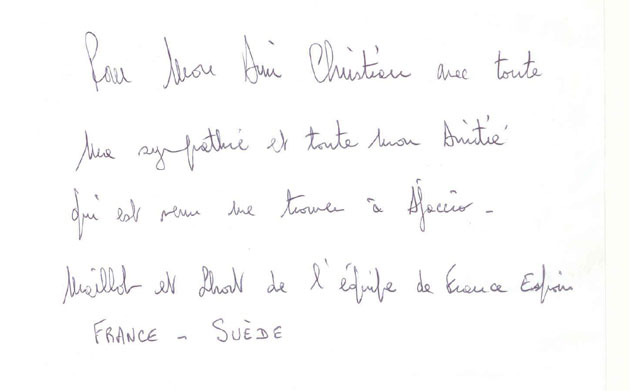 Pour Mon Ami Christian avec toute
Ma sympathie et toute mon Amitié
qui est venu me trouver à Ajaccio -
Maillot et Short de l'équipe de France Espoir
FRANCE - SUÈDE